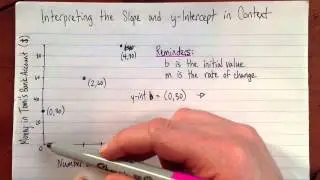 Interpreting the Slope and y-Intercept in Context
Money in Tom's Bank Account ($)
(2,60)
(0,30)
0
Reminders:
b is the initial value
m is the rate of change.
y-int b = (0,30) →
Number